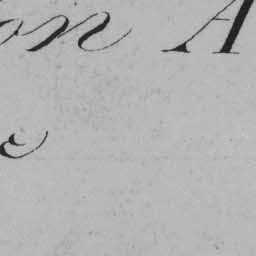 on A
e